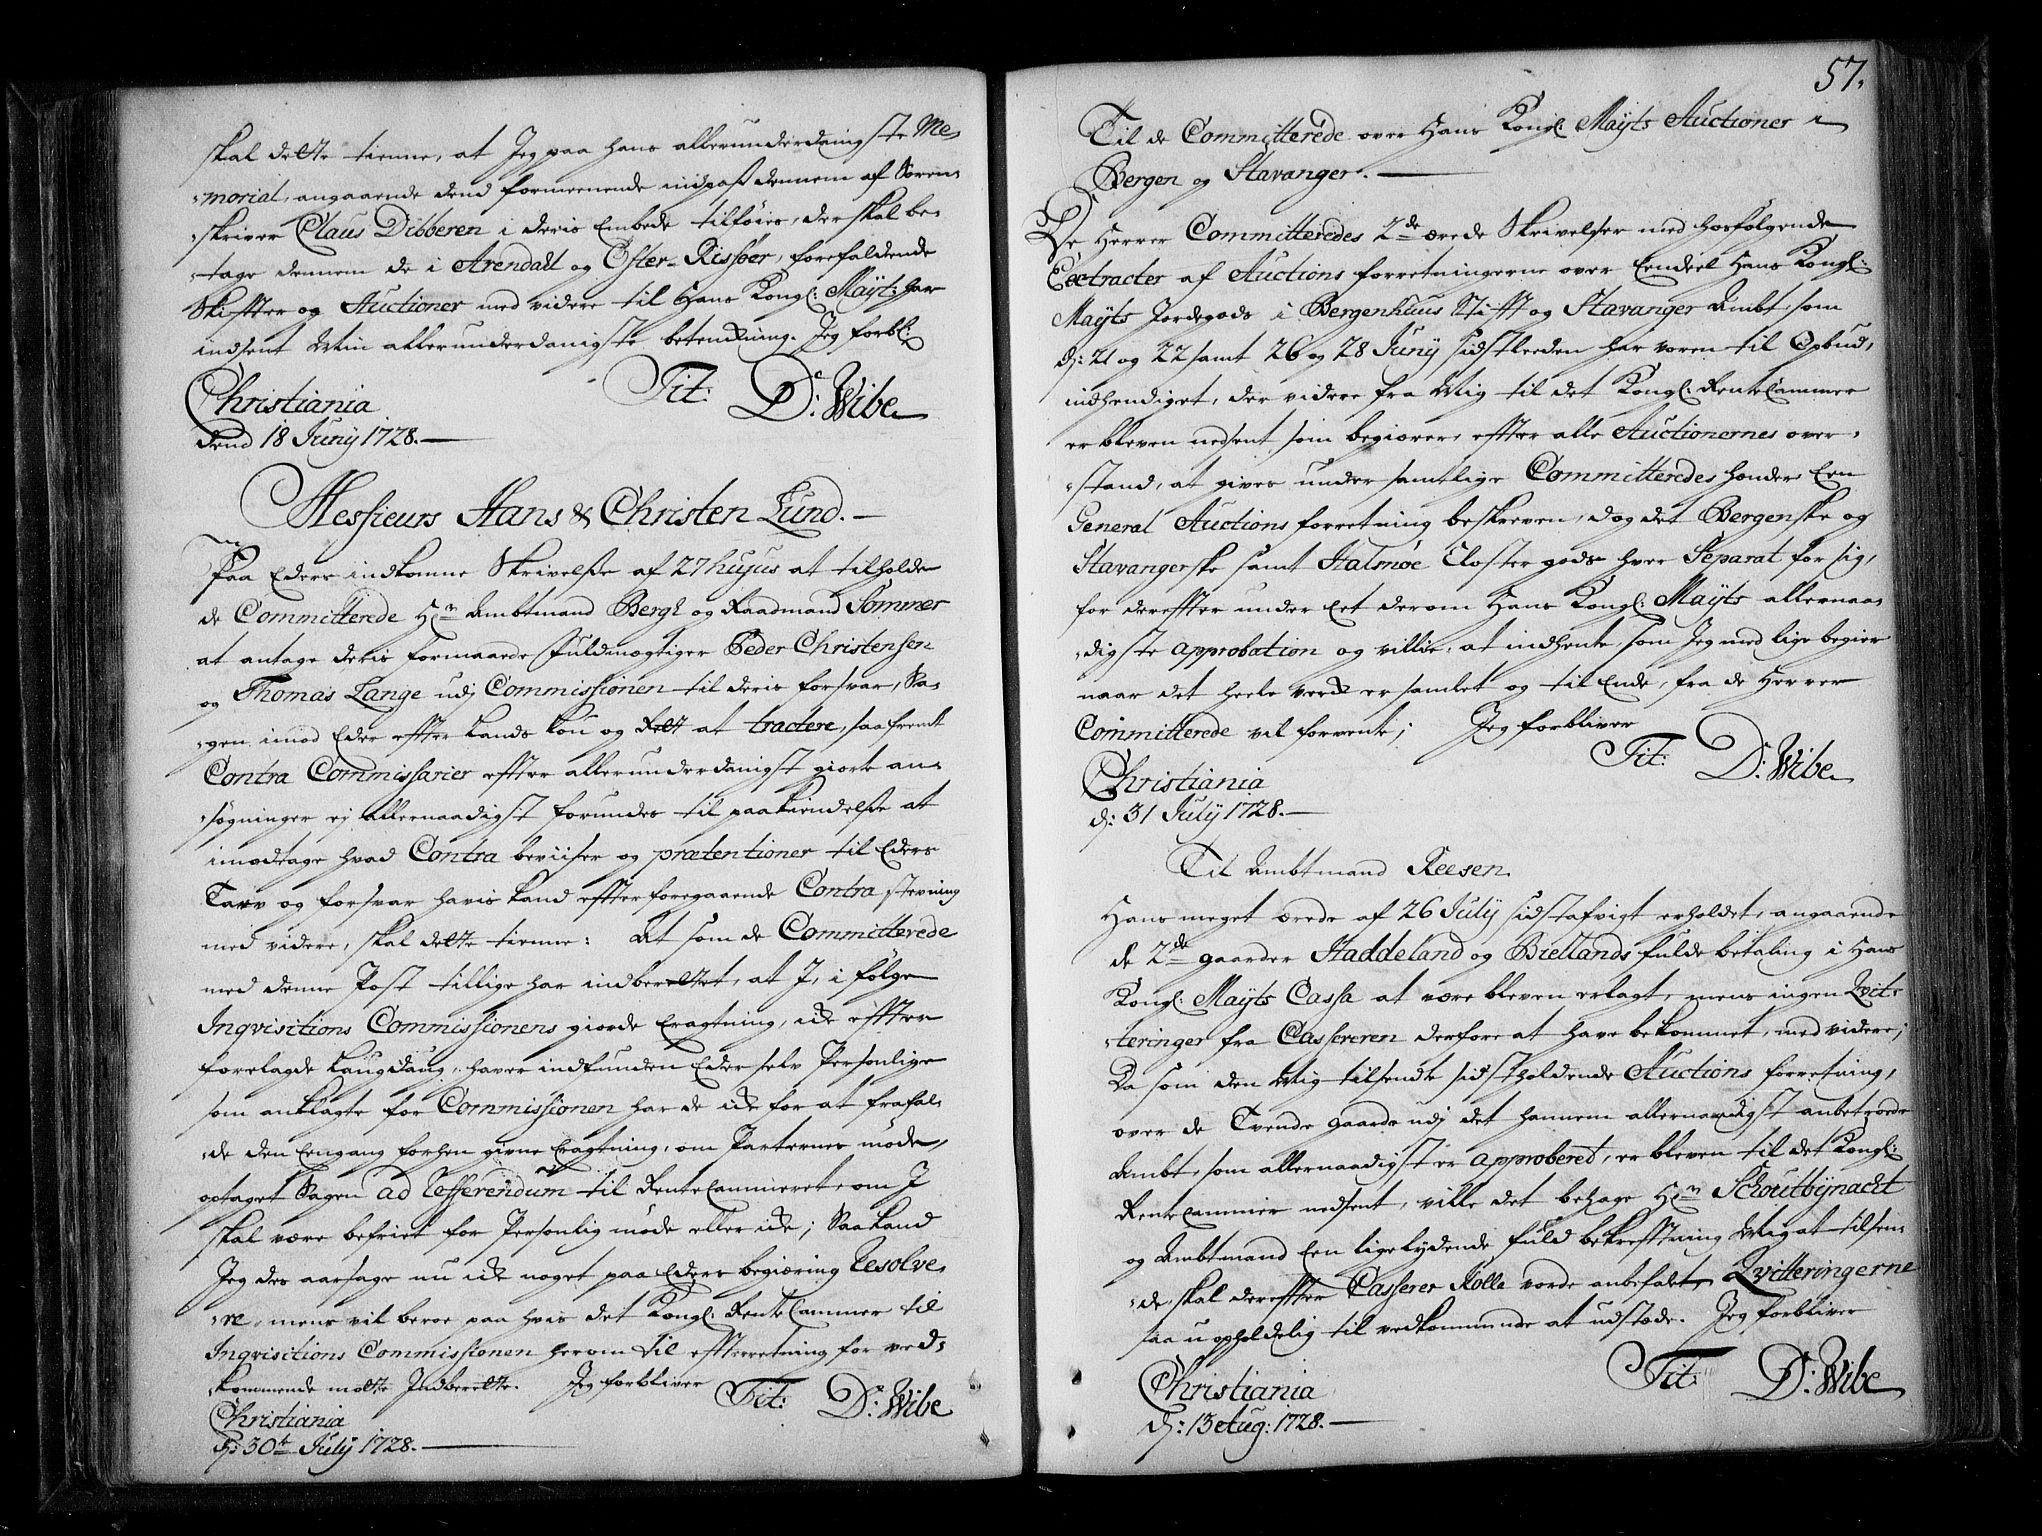 skal dette tienne, at Jeg paa hans allerunderdanigste Me-
-morial, angaaende dend formeenende indpas dennem af Soren-
-skriver Claus Dibberen i deris Embede tilföies, der skal be-
-tage dennem de i Arendall og Öster-Rissöer, forefaldende
Skiffter og Auctioner med videre til Hans Kongl: Mayts: har
indsent Min allerunderdanigste betenkning. Jeg forbl:
Tit: D: Wibe
Christiania
dend 18 Juny 1728.
Messieurs Hans & Christen Lund.
Paa Eders indkomne Skrivelsse af 27 hujus at tilholde
de Committerede Hr. Ambtmand Bergh og Raadmand Sommer
at antage deris formaaede Fuldmægtiger Peder Christensen
og Thomas Lange udj Commissionen til deris forsvar, Sa-
-gen imod Eder effter Lands Lou og Rett at tractere, saafremt
Contra Commissarier effter allerunderdanigst giorte an-
-søgninger ej allernaadigst forundes til paakiendelsse at
imodtage hvad Contra beviiser og prætentioner til Eders
Tarv og forsvar havis kand effter foregaaende Contra stevning
med videre, skal dette tienne: At som de Committerede
med denne Post tillige har indberettet, at I, i følge
Inqvisitions Commissionens giorde Eragtning, ike effter
forelagde Laugdaug, haver indfunden Eder selv Personlige
som anklagte for Commissionen har de ike for at frafal-
-de den Eengang forhen givne Eragtning, om Parternes møde,
optaget Sagen ad Refferendum til RenteCammeret, om I
skal være befriet for Personlig møde eller ike; Saa kand
Jeg des aarsage nu ike noget paa Eders begiæring Resolve-
-re, mens vil beroe paa hvis det Kongl: RenteCammer til
Inqvisitions Commissionen herom til effterretning for ved-
-kommende motte Indberette. Jeg forbliver
Tit: D: Wibe
Christiania
d: 30t July 1728.
57.
Til de Committerede over Hans Kongl: Mayts Auctioner i
Bergen og Stavanger.
De Herrer Committeredes 2de ærede Skrivelser med hosfølgende
Extracter af Auctions forretningerne over Eendeel Hans Kongl:
Mayts Jordegods i Bergenhuus Stifft og Stavanger Ambt, som
d: 21 og 22 samt 26 og 28 Juny sidstleeden har voren til Opbud,
indhendiget, der videre fra Mig til det Kongl: RenteCammer
er bleven nedsent som begiærer, effter alle Auctionernes over-
-stand, at gives under samtlige Committeredes hænder Een
General Auctions forretning beskreven, dog det Bergenske og
Stavangerske samt Halsnøe Closter gods hver Separat for sig,
for dereffter under Eet derom Hans Kongl: Mayts allernaa-
-digste approbation og villie, at indhente, som Jeg med lige begier
naar det heele verk er samlet og til Ende, fra de Herrer
Committerede vil forvente; Jeg forbliver
Tit: D: Wibe
Christiania
d: 31 July 1728.
Til Ambtmand Reesen.
Hans meget ærede af 26 July sidst afvigt erholdet, angaaende
de 2de gaarder Haddeland og Biellands fulde betaling i Hans
Kongl: Mayts Cassa at være bleven erlagt, mens ingen Qvit-
-teringer fra Cassereren derfore at have bekommet, med videre;
Da som den Mig tilsendte sidst holdende Auctions forretning,
over de Tvende gaarde udj det hannem allernaadigst anbetroede
Ambt, som allernaadigst er approberet, er bleven til det Kongl:
RenteCammer nedsent, ville det behage Hr. Schoutbynacht
og Ambtmand Een ligelydende fuld bekrefftning Mig at tilsen-
-de, skal dereffter Casserer Rolle vorde anbefalet, Qvitteringerne
saa uopholdelig til vedkommende at udstæde. Jeg forbliver
Tit: D: Wibe
Christiania
d: 13 Aug: 1728.